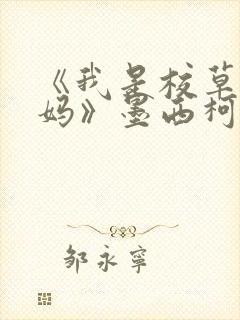 《我是校草
妈》墨西柯
邹永寧